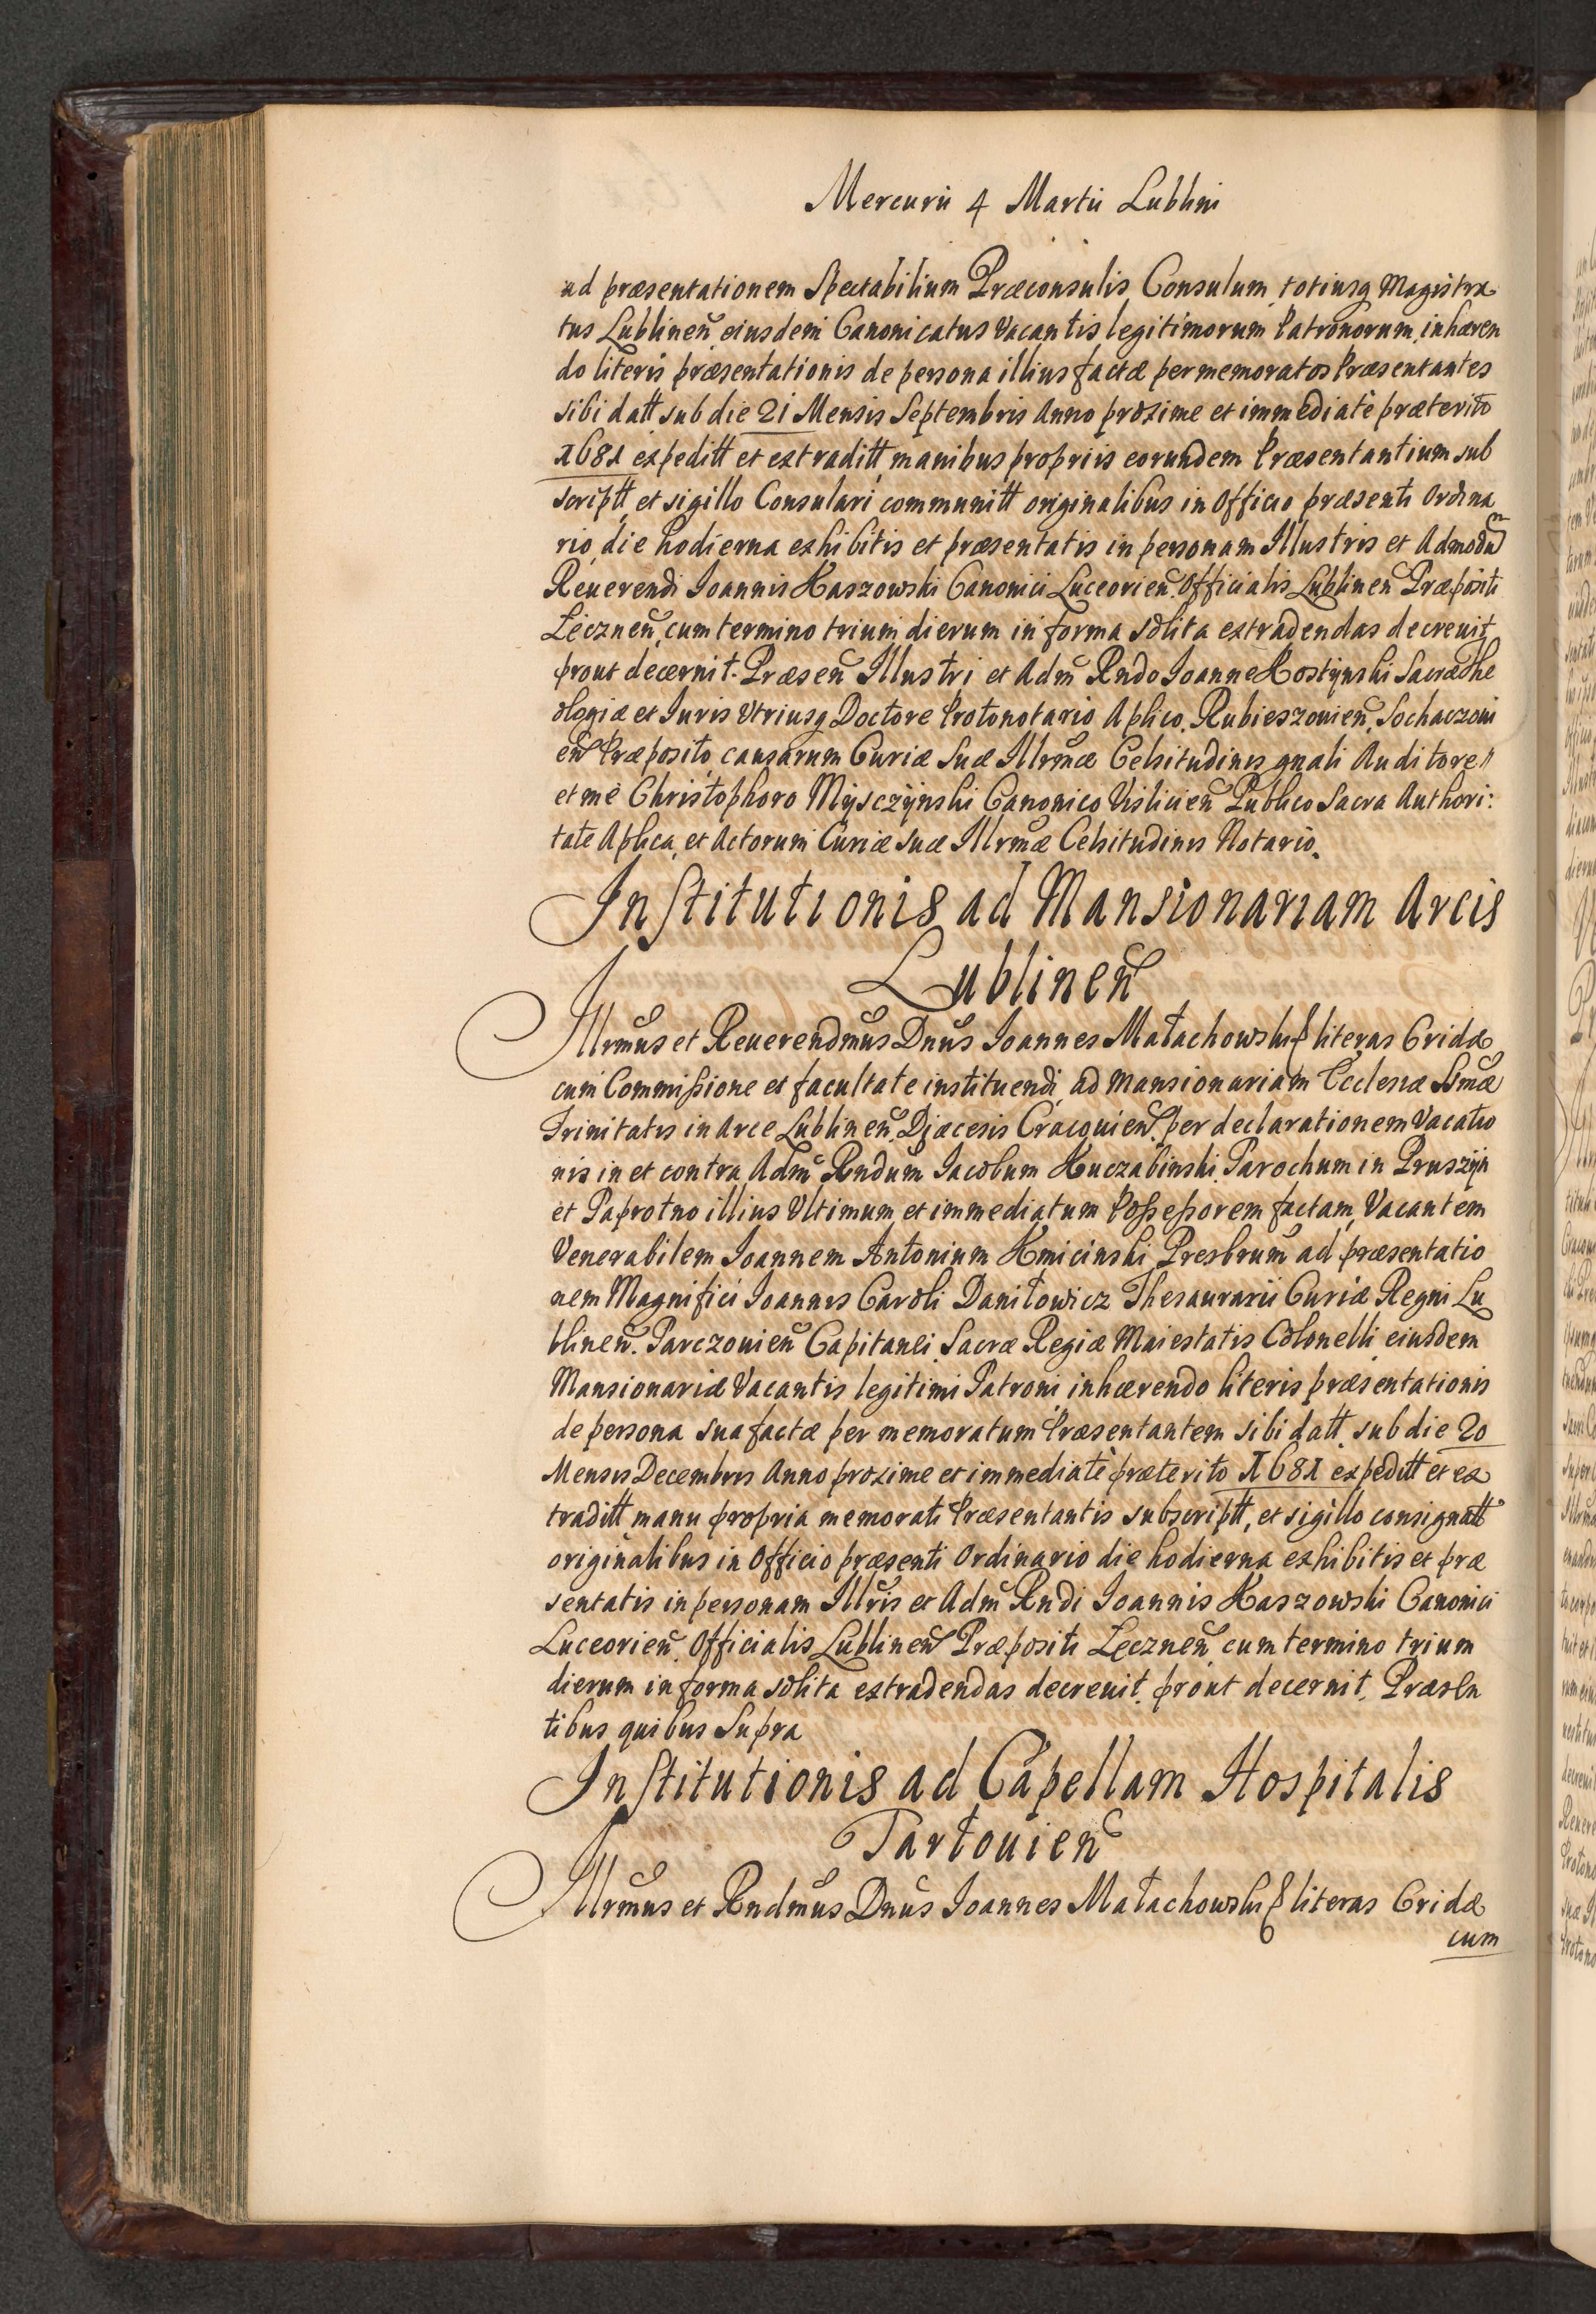 Mercurii 4 Martii Lublini
ad præsentationem Spectabilium Præconsulis Consulum totiusq Magistra
tus Lublineñ eiusdem Canonicatus Vacantis legitimorum Patronorum inhæren
do literis præsentationis de persona illius factæ per memoratos Præsentantes
sibi datt sub die 21 Mensis Septembris Anno proxime et immediatè præterito
1681 expeditt et extraditt manibus propriis eorundem Præsentantium sub
scriptt et sigillo Consulari communitt originalibus in Officio præsenti Ordina
rio die hodierna exhibitis et præsentatis in personam Illustris et Admodũ
Reuerendi Ioannis Kaszowski Canonici Luceorieñ Officialis Lublineñ Præpositi
Łęczneñ cum termino trium dierum in forma solita extradendas decreuit
prout decernit. Præseñ Illustri et Adm̃ Rndo Ioanne Kostynski Sacræ The
ologiæ et Iuris Vtriusq Doctore Protonotario Aplico, Rubieszouieñ, Sochaczoui
eñ Præposito, causarum Curiæ Suæ Illrm̃æ Celsitudinis gnali Auditore
et me Christophoro Mÿsczÿnski Canonico Vislicieñ Publico Sacra Authori:
tate Aplica et Actorum Curiæ suæ Illrm̃æ Celsitudinis Notario.
Institutionis ad Mansionariam Arcis
Lublineñ
Illrm̃us et Reuerendm̃us Dnũs Ioannes Małachowski ꝑ literas Cridæ
cum Commissione et facultate instituendi ad Mansionariam Ecclesiæ SSmæ
Trinitatis in Arce Lublineñ Diæcesis Cracouieñ. per declarationem Vacatio
nis in et contra Adm̃ Rndum Iacobum Kuczabinski Parochum in Pruszÿn
et Paprotno illius Vltimum et immediatum Possessorem factam Vacantem
Venerabilem Ioannem Antonium Kmicinski Presbrum̃ ad præsentatio
nem Magnifici Ioannis Caroli Daniłowicz Thesaurarii Curiæ Regni Lu
blineñ. Parczouieñ Capitanei Sacræ Regiæ Maiestatis Colonelli eiusdem
Mansionariæ Vacantis legitimi Patroni inhærendo literis præsentationis
de persona sua factæ per memoratum Præsentantem sibi datt sub die 20
Mensis Decembris Anno proxime et immediatè præterito 1681 expeditt et ex
traditt manu propria memorati Præsentantis subscriptt, et sigillo consignatt
originalibus in Officio præsenti Ordinario die hodierna exhibitis et præ
sentatis in personam Illr̃is et Adm̃ Rndi Ioannis Kaszowski Canonici
Luceorieñ Officialis Lublineñ Præpositi Łęczneñ cum termino trium
dierum in forma solita extradendas decreuit prout decernit, Præsen
tibus quibus Supra
Institutionis ad Capellam Hospitalis
Tarłouieñ
Illrm̃us et Rndm̃us Dnũs Ioannes Małachowski ꝑ literas Cridæ
cum